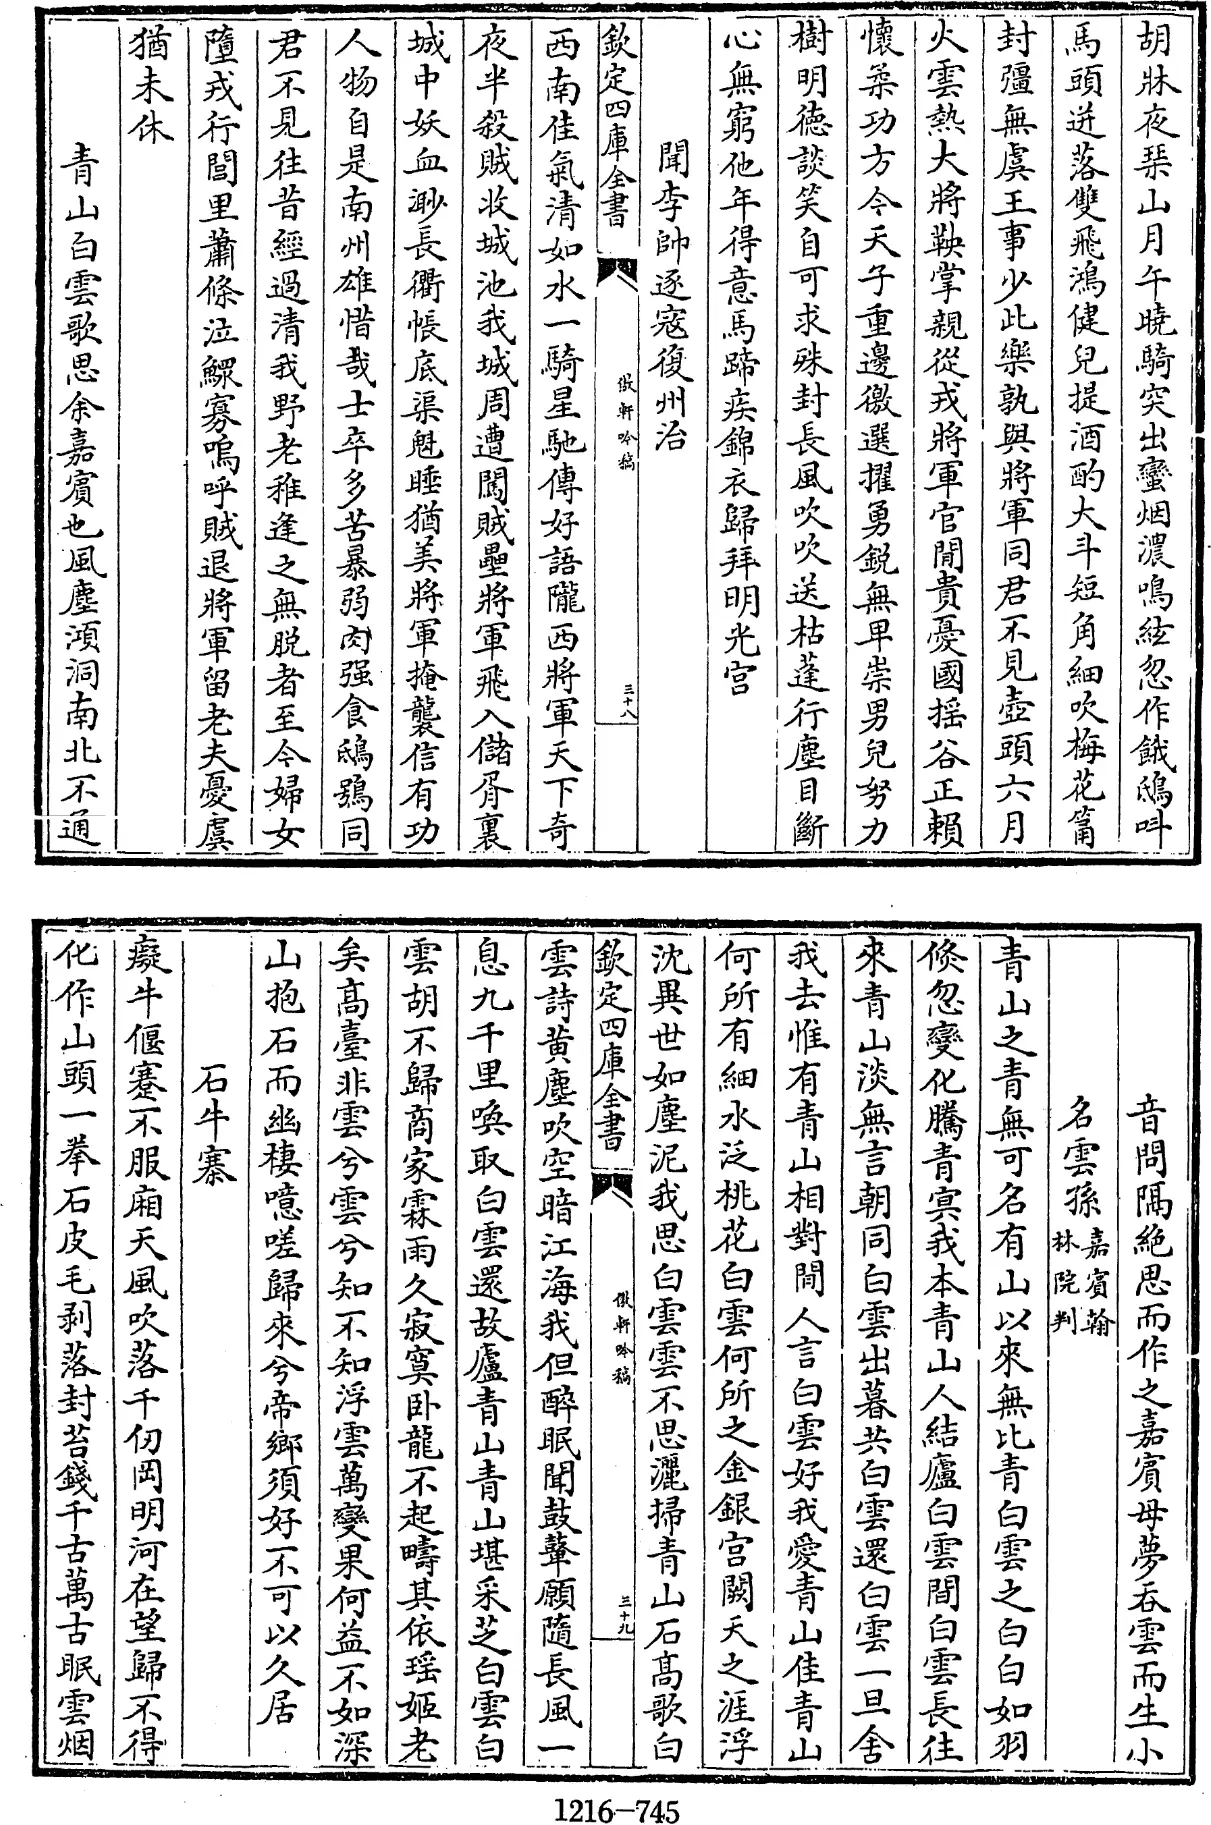 胡牀夜琹山月午曉騎突出蠻烟濃鳴絃忽作餓鴟叫
馬頭迸落雙飛鴻健兒提酒酌大斗短角細吹梅花篇
封疆無虞王事少此樂孰與將軍同君不見壺頭六月
火雲熱大將鞅掌親從戎將軍官閒貴憂國揺谷正賴
懷柔功方今天子重邊徼選擢勇鋭無卑崇男兒努力
樹明徳談笑自可求殊封長風吹吹送枯蓬行塵目斷
心無窮他年得意馬蹄疾錦衣歸拜明光宫
聞李帥逐寇復州治
欽定四庫全書
傲軒吟稿
三十八
西南佳氣清如水一騎星馳傳好語隴西將軍天下奇
夜半殺賊收城池我城周遭闖賊壘將軍飛入儲胥裏
城中妖血渺長衢帳底渠魁睡猶美將軍掩襲信有功
人物自是南州雄惜哉士卒多苦暴弱肉强食鴟鴞同
君不見往昔經過清我野老稚逢之無脱者至今婦女
隨戎行閭里蕭條泣鰥寡嗚呼賊退將軍留老夫憂虞
猶未休
青山白雲歌思余嘉賓也風塵澒洞南北不通
音問隔絶思而作之嘉賓母夢吞雲而生小
名雲孫嘉賓翰林院判
青山之青無可名有山以來無比青白雲之白白如羽
倐忽變化騰青冥我本青山人結廬白雲間白雲長往
來青山淡無言朝同白雲出暮共白雲還白雲一旦舍
我去惟有青山相對閒人言白雲好我愛青山佳青山
何所有細水泛桃花白雲何所之金銀宫闕天之涯浮
沈異世如塵泥我思白雲雲不思灑掃青山石髙歌白
欽定四庫全書
傲軒吟稿
三十九
雲詩黄塵吹空暗江海我但醉眠聞鼓鼙願隨長風一
息九千里喚取白雲還故廬青山青山堪采芝白雲白
雲胡不歸商家霖雨久寂寞卧龍不起疇其依瑶姬老
矣髙臺非雲兮雲兮知不知浮雲萬變果何益不如深
山抱石而幽棲噫嗟歸來兮帝鄉須好不可以久居
石牛寨
癡牛偃蹇不服廂天風吹落千仞岡明河在望歸不得
化作山頭一拳石皮毛剥落封苔錢千古萬古眠雲烟
1216-745